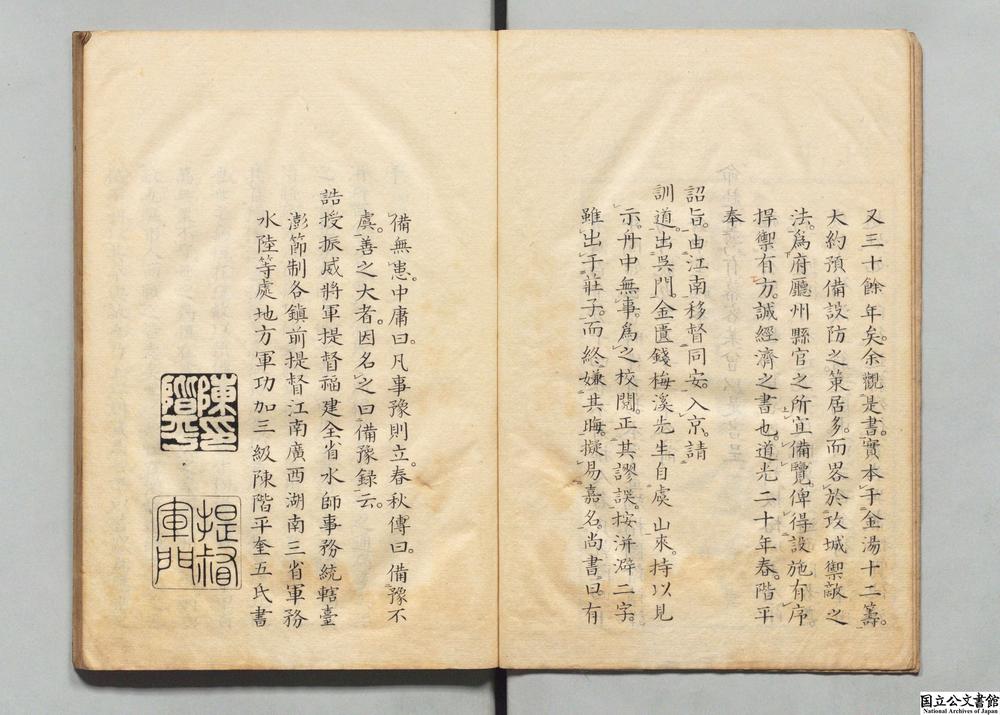 又三十餘年矣。余觀是書。實本于金湯十二籌。
大約預備設防之策居多。而畧於攻城禦敵之
法。爲府廳州縣官之所宜備覽。俾得設施有序
捍禦有方。誠經濟之書也。道光二十年春。階平
奉
詔旨。由江南移督同安。入京請
訓。道出吳門。金匱錢梅溪先生自虞山來。持以見
示。舟中無事。爲之校閱。正其謬誤。按洴澼二字。
雖出于莊子。而終嫌其晦。擬易嘉名。尚書曰。有
備無患。中庸曰。凡事豫則立。春秋傳曰。備豫不
虞。善之大者。因名之曰備豫錄云。
誥授振威將軍提督福建全省水師事務統轄臺
澎節制各鎮前提督江南廣西湖南三省軍務
水陸等處地方軍功加三級陳階平奎五氏書
陳印階平
提督軍門
国立公文書館
National Archives of Japan